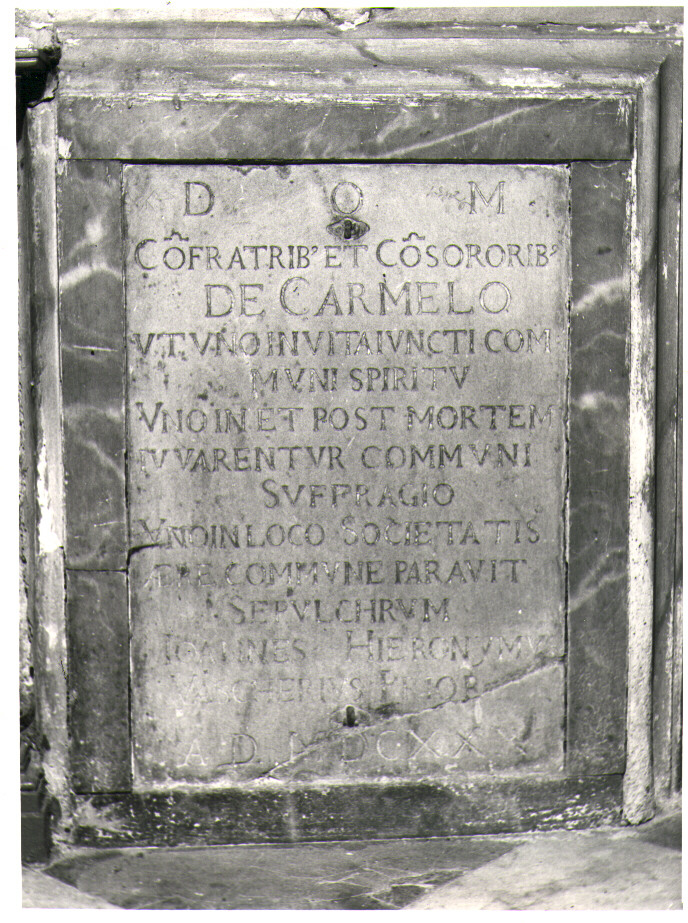 D O M
CÕFRATRIB' ET CÕSORORIB'
DE CARMELO
VT VNO IN VITA IVNCTI COM
MVNI SPIRITV
VNO IN ET POST MORTEM
IVVARENTVR COMMVNI
SVFFRAGIO
VNO IN LOCO SOCIETATIS
ÆRE COMMVNE PARAVIT
SEPVLCHRVM
IOANNES HIERONYMVS
PRIOR
A D M DCXXX